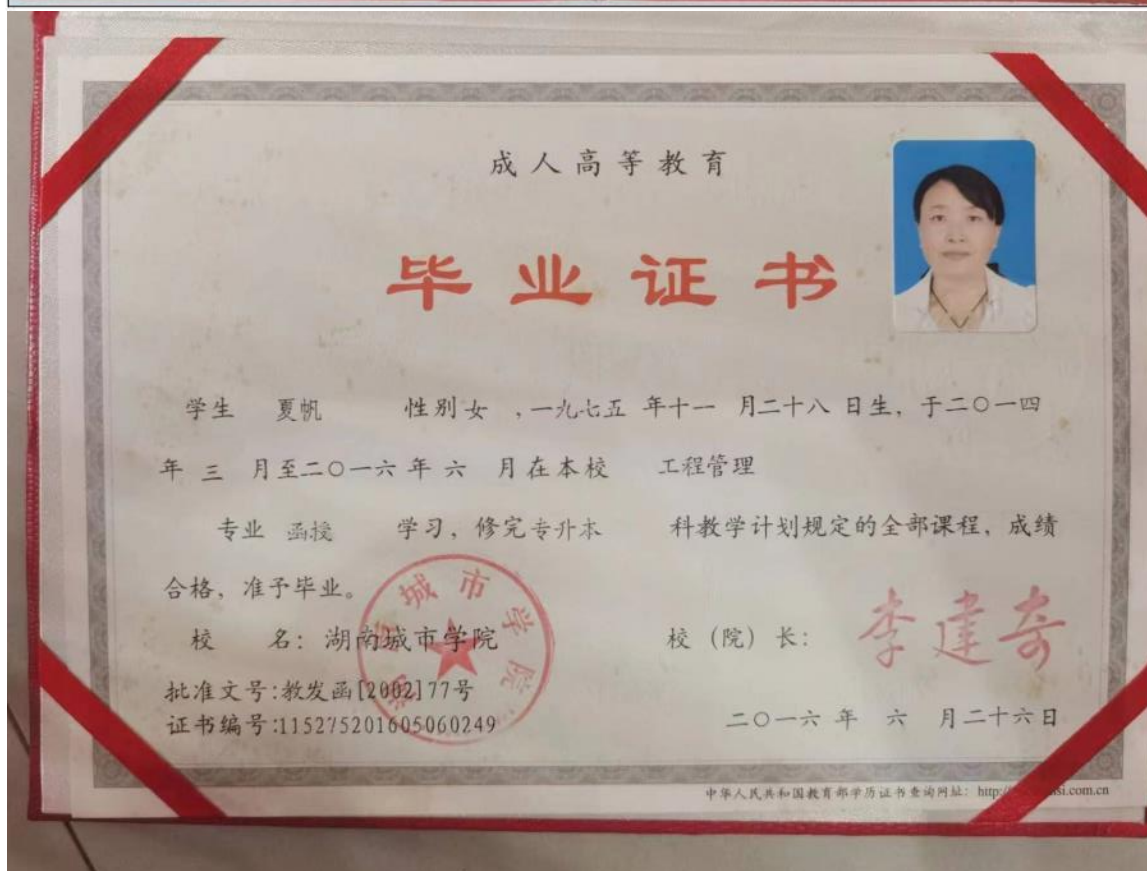 成人高等教育
毕业证书
学生 夏帆 性别女 ，一九七五 年十一 月二十八 日生，于二〇一四
年 三 月至二〇一六 年 六 月在本校 工程管理
专业 函授 学习，修完专升本 科教学计划规定的全部课程，成绩
合格，准予毕业。
校 名：湖南城市学院 校（院）长：李建奇
城市学院
批准文号:教发函[2002]77号
证书编号:115275201605060249
二〇一六 年 六 月二十六日
中华人民共和国教育部学历证书查询网址：http:// si.com.cn